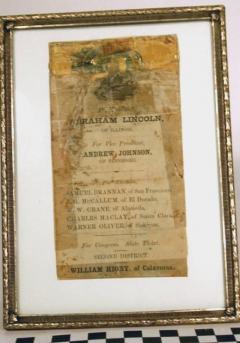 ABRAHAM LINCOLN,
OF ILLINOIS.
For Vice President,
ANDREW JOHNSON,
OF TENNESSEE.
SAMUEL BRANNAN, of San Francisco
McCALLUM, of El Dorado,
W. CRANE, of Alameda,
CHARLES MACLAY, of Santa Clara,
WARNER OLIVER, of
For Congress. State Ticket.
SECOND DISTRICT.
WILLIAM HIGBY, of Calaveras.